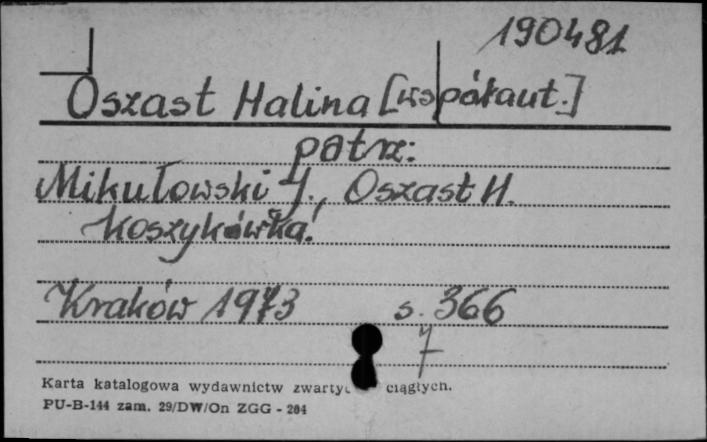 190481
Oszast Halina [współaut.]
patrz:
Mikułowski J., Oszast H.
Koszykówka!
Kraków 1973 s. 366
7
Karta katalogowa wydawnictw ciągłych.
PU-B-144 zam. 29/DW/On ZGG - 204